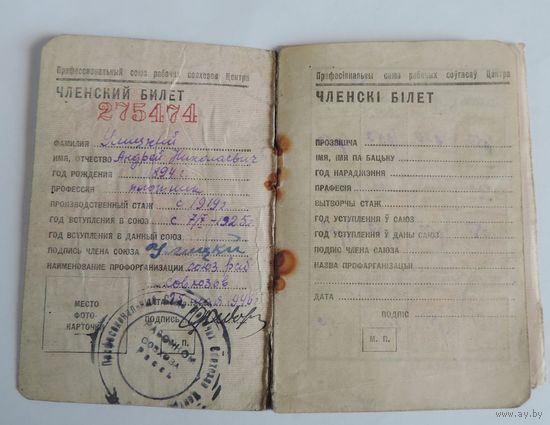 Профессиональный союз рабочих совхозов Центра
ЧЛЕНСКИЙ БИЛЕТ
275474
ФАМИЛИЯ Улицкий
ИМЯ, ОТЧЕСТВО Андрей Николаевич
ГОД РОЖДЕНИЯ
ПРОФЕССИЯ плотник
ПРОИЗВОДСТВЕННЫЙ СТАЖ с 1919 г.
ГОД ВСТУПЛЕНИЯ В СОЮЗ с 7/V-1925г.
ГОД ВСТУПЛЕНИЯ В ДАННЫЙ СОЮЗ
ПОДПИСЬ ЧЛЕНА СОЮЗА Улицкий
НАИМЕНОВАНИЕ ПРОФОРГАНИЗАЦИИ союз раб
совхозов
ДАТА 1946 г
МЕСТО
ФОТО-
КАРТОЧКИ
ПОДПИСЬ
М. П.
РАБОЧКОМ
СОВХОЗА
Професіянальны саюз рабочых соўгасаў Цэнтра
ЧЛЕНСКІ БІЛЕТ
ПРОЗВІШЧА
ІМЯ, ІМЯ ПА БАЦЬКУ
ГОД НАРАДЖЭННЯ
ПРАФЕСІЯ
ВЫТВОРЧЫ СТАЖ
ГОД УСТУПЛЕННЯ Ў САЮЗ
ГОД УСТУПЛЕННЯ Ў ДАНЫ САЮЗ
ПОДПІС ЧЛЕНА САЮЗА
НАЗВА ПРОФАРГАНІЗАЦЫІ
ДАТА
ПОДПІС
М. П.
ay.by